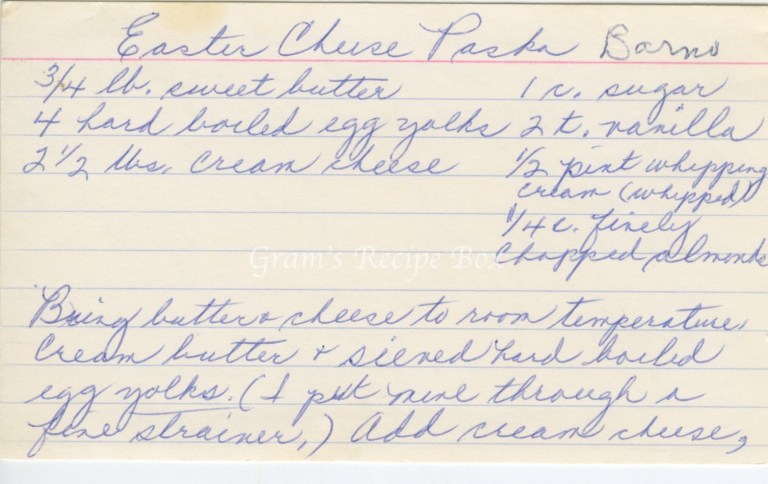 Easter Cheese Paska Barno
3/4 lb. sweet butter 1 c. sugar
4 hard boiled egg yolks 2 t. vanilla
2 1/2 lbs. cream cheese 1/2 pint whipping
cream (whipped)
1/4 c. finely
chopped almonds
Gram's Recipe Box
Bring butter & cheese to room temperature.
Cream butter & sieved hard boiled
egg yolks. (I put mine through a
fine strainer.) Add cream cheese,